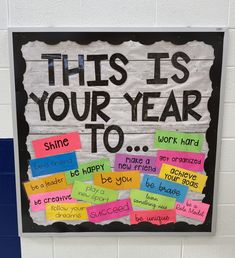 THIS IS
YOUR YEAR
TO...
Shine
work hard
Stand out
make a new friend
get organized
be happy
be a leader
play a new sport
be you
achieve your goals
be brave
be creative
follow your dreams
SUCCEED
learn something new
be a Role Model
be unique